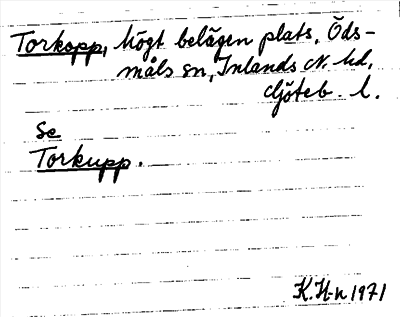 Torkopp, högt belägen plats, Öds-
måls sn, Inlands N. hd,
Göteb. l.
Se
Torkupp.
K.H-n 1971